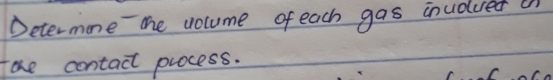 Determine the volume of each gas involved in
the contact process.